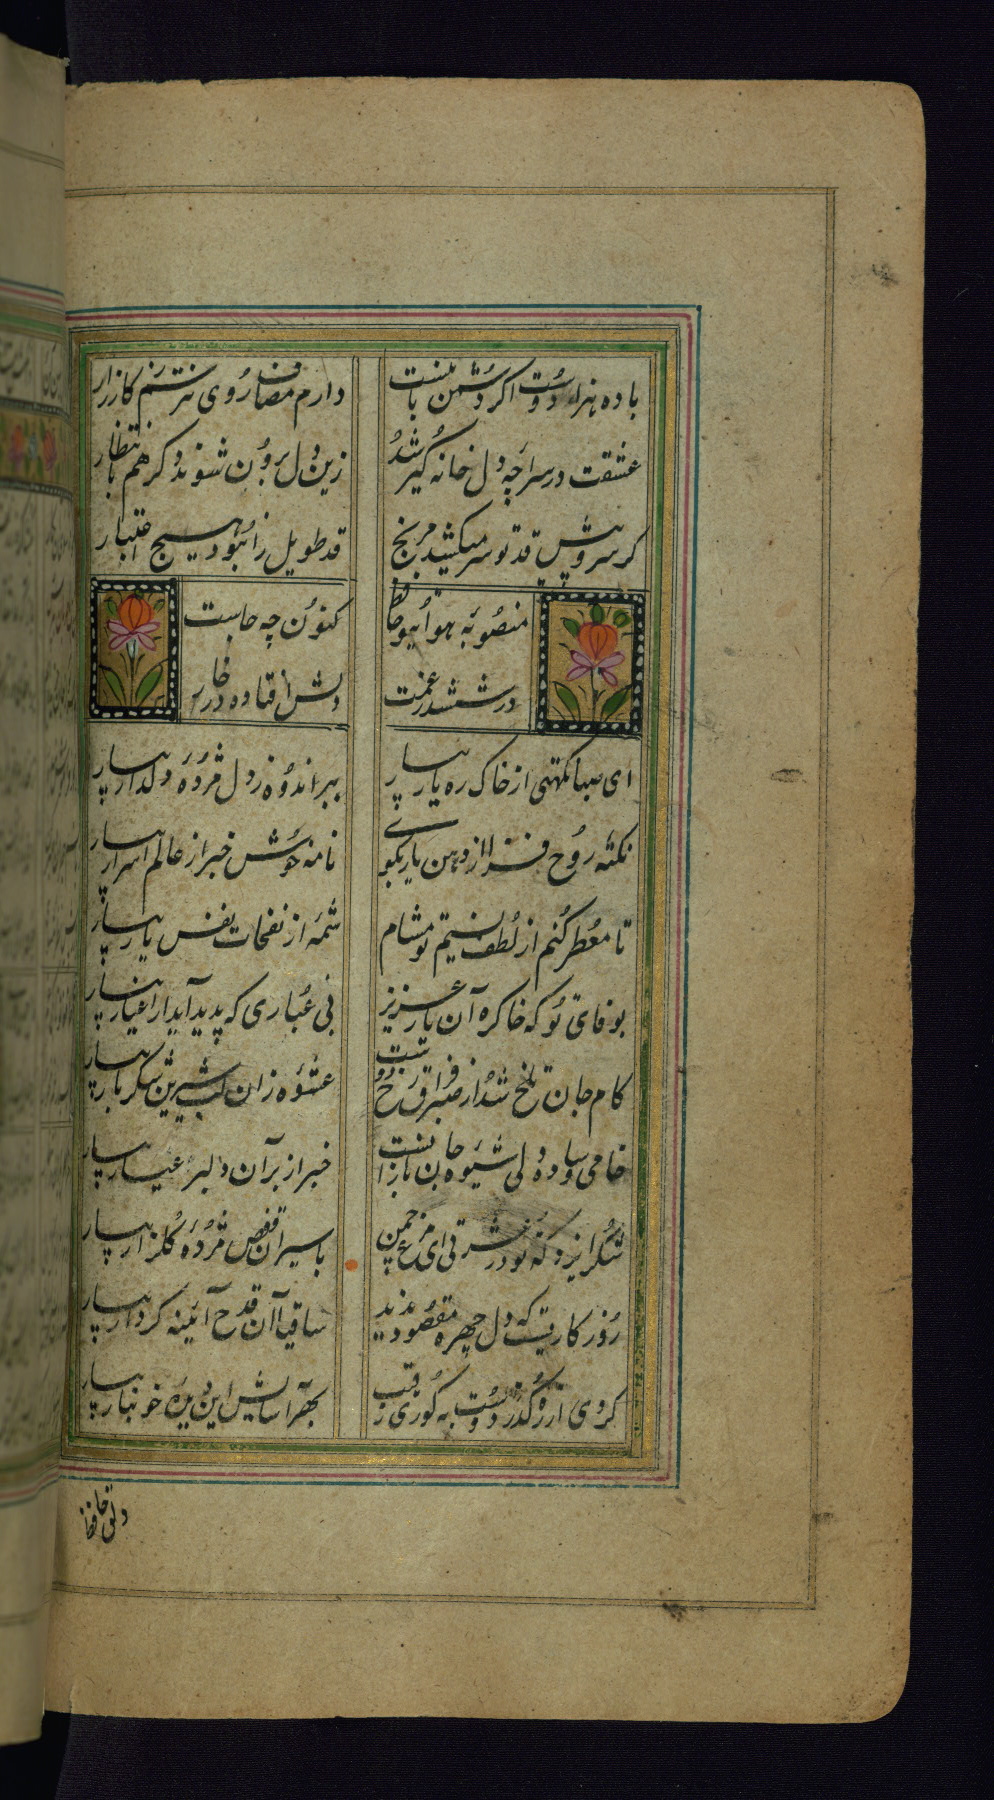 با ده هزار دوست اگر دشمن بایست
دارم مصاف روی نترسم کارزار
عشقت در سراچه دل خانه گیر شد
زین دل برون شوند دگر هم بانتظار
گر سرو پیش قد تو سر میکشید مرنج
قد طویل را نبود هیچ اعتبار
منصوبه هوا تو حافظ
کنون چه جاست
در ششدر غمت
دلش افتاده در
ای صبا نکهتی از خاک ره یار بیار
ببر اندوه ز دل مژده دلدار بیار
نکته روح فزا از دهن یار بگوی
نامه خوش خبر از عالم اسرار بیار
تا معطر کنم از لطف نسیم تو مشام
شمه از نفحات نفس یار بیار
بوفای تو که خاک ره آن یار عزیز
بی غباری که پدید آید از اغیار بیار
کام جان تلخ شد از صبر فراق رخ دوست
عشوه زان لب شیرین شکربار بیار
خامی و ساده دلی شیوه جانبازان نیست
خبر از بر آن دلبر عیار بیار
شکر ایزد که تو در عشرتی ای مرغ چمن
باسیران قفص مژده گلزار بیار
روزگاریست که دل چهره مقصود ندید
ساقیا آن قدح آئینه کردار بیار
گردی از رهگذر دوست به کوری رقیب
بهر آسایش این دیده خونبار بیار
دلق حافظ